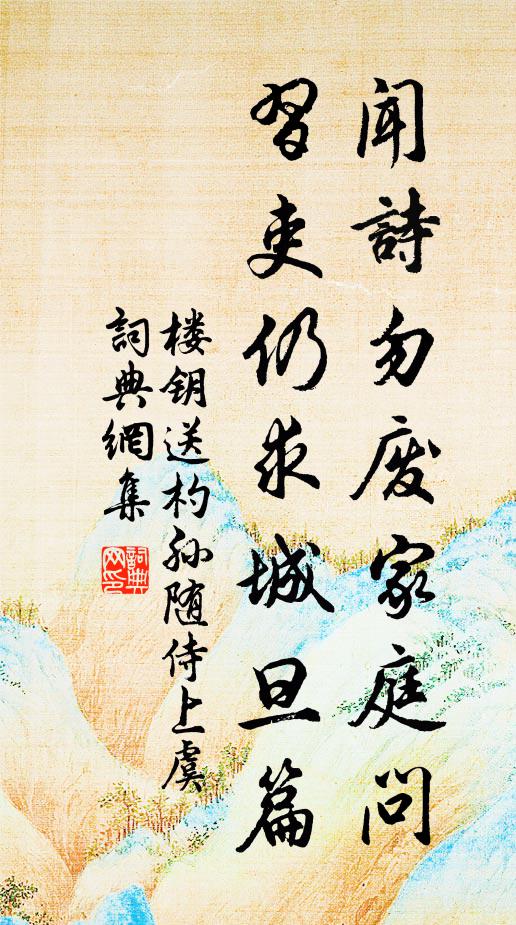 闻詩勿废家庭问
習吏仍求城旦篇
楼钥送杓孙随侍上虞
詞典網集
詞典
网印